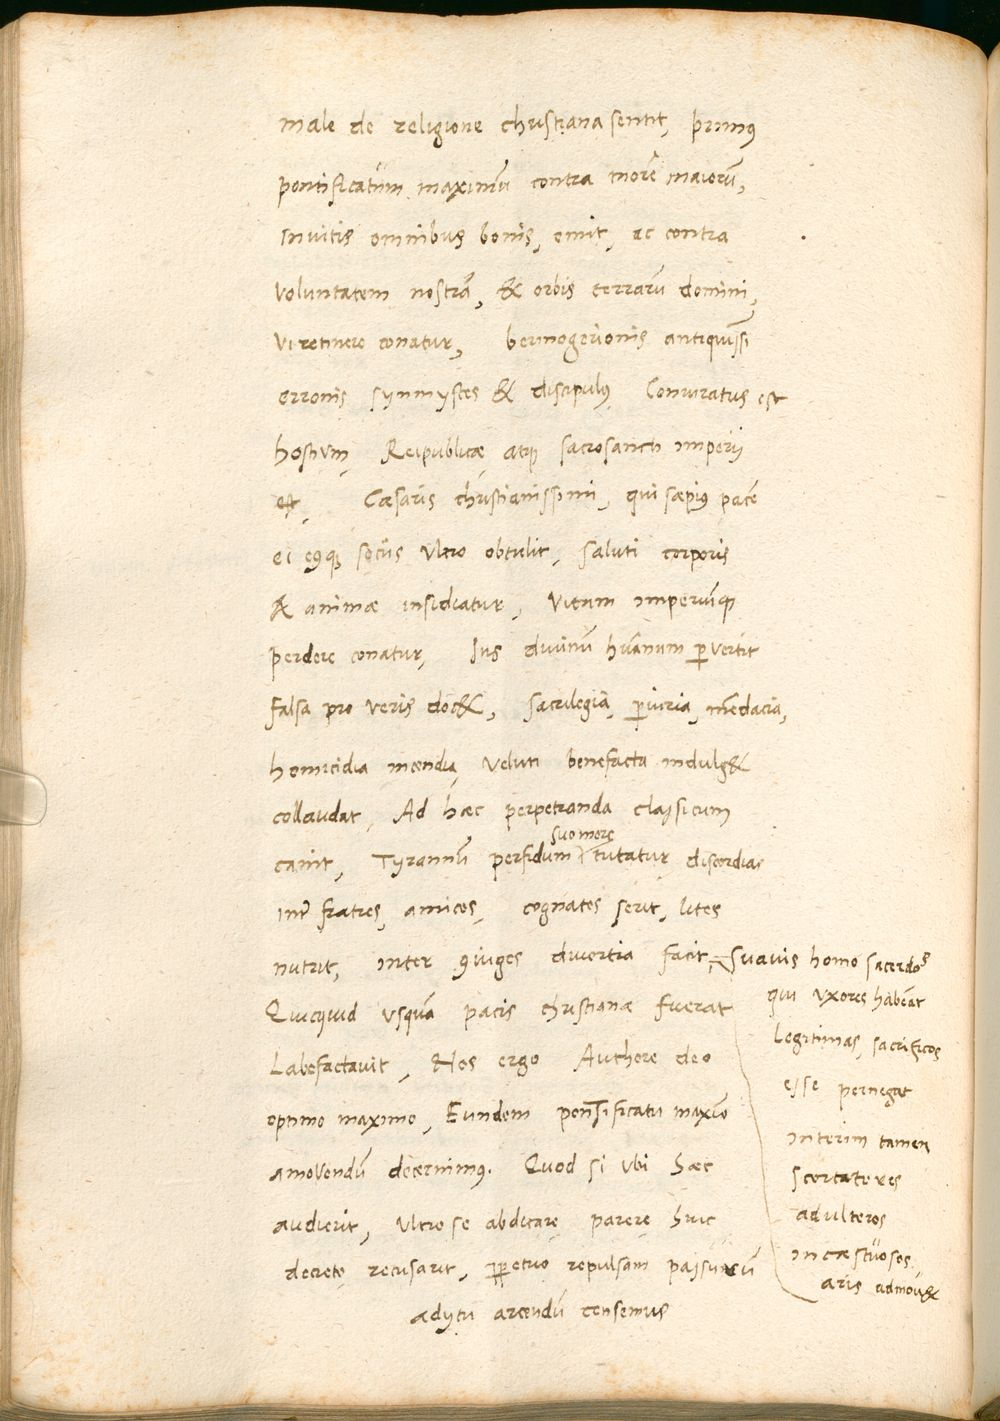 male de religione christiana sentit, primꝰ
pontificatum maximũ contra morẽ maiorũ,
Invitis omnibus bonis, emit, ac contra
voluntatem nostrã, & orbis terrarũ domini,
vi retinere conatur, berinogerionis antiquissi
erronis synmystes & discipulꝰ Coniuratus est
hostium Reipublicæ atqꝫ sacrosancti imperij
est, Cæsaris christianissimi, qui sæpiꝰ pacẽ
ei eꝰqꝫ socijs ultro obtulit, saluti corporis
& animæ insidiatur, vitam imperiũqꝫ
perdere conatur, Ius divinũ hũanum ꝑvertit
falsa pro veris doc&, sacrilegia, ꝑiuria, mẽdacia,
homicidia incendia, veluti benefacta indulg&
collaudat, Ad hæc perpetranda classicum
suo more
canit, Tyrannũ perfidum tutatur discordias
inter fratres, amicos, cognatos serit, lites
nutrit, inter ꝯiuges divortia facit,
Quicquid usquã pacis christianæ fuerat
Labefactavit, Nos ergo Authore deo
optimo maximo, Eundem pontificatu maxĩo
amovendũ decernimꝰ. Quod si ubi hæc
audierit, ultro se abdicare, parere huic
decreto recusarit, ꝑpetuo repulsam passurũ
adytu arcendũ censemus
suavis homo sacerdos
qui uxores habẽat
legitimas, sacrificos
esse pernegat
interim tamen
scortatores
adulteros
incæstuosos
aris admov&